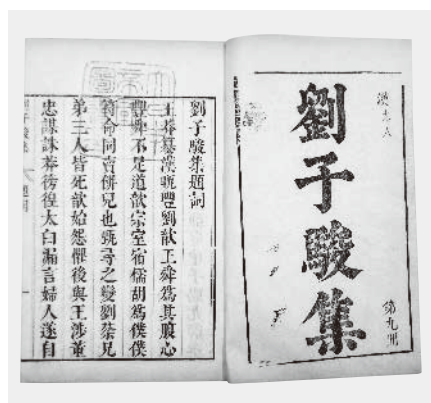 漢九人
劉子駿集
第九冊
劉子駿集題詞
王莽篡漢甄豐劉歆王舜為其腹心
豐舜不足道歆宗室宿儒胡為僕僕
符命同賣併兄也甄尋之變劉棻兄
弟三人皆死歆始怨懼後與王涉董
忠謀誅莽徬徨太白漏言婦人遂自